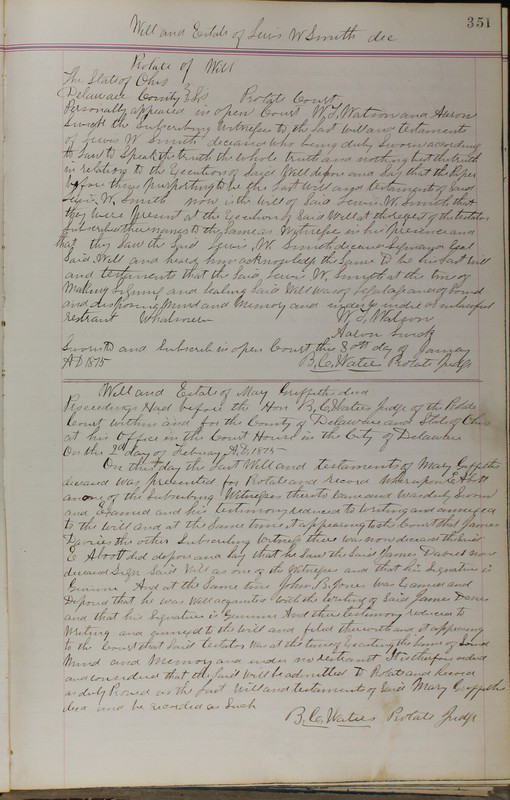 351
Will and Estate of Lewis W Smith dec
Probate of Will
The State of Ohio
Delaware County } SS Probate Court
Personally appeared in open Court W. T. Watson and Aaron
Swick the Subscribing Witnesses to the Last will and testament
of Lewis W. Smith deceased who being duly Sworn according
to Law to Speak the truth the whole truth and nothing but the truth
in relation to the Execution of Said Will depose and Say that the Paper
before them purporting to be the Last Will and testament of Said
Lewis W. Smith now is the Will of Said Lewis W. Smith that
they were present at the Execution of Said Will at the request of the testator
Subscribed their names to the Same as Witnesses in his presence and
that they Saw the Said Lewis W. Smith deceased Sign and Seal
Said Will and heard him acknowledge the Same to be his Last Will
and testament that the Said Lewis W. Smith at the time of
Making Signing and Sealing Said Will was of legal age and of Sound
and disposing Mind and Memory and under no unlawful
restraint Whatsoever W. T. Watson
Aaron Swick
Sworn to and Subscribed in open Court this 30th day of January
AD 1875 B. C. Waters Probate Judge
Will and Estate of Mary Griffiths decd
Proceedings Had before the Hon B. C. Waters Judge of the Probate
Court within and for the County of Delaware and State of Ohio
at his Office in the Court House in the City of Delaware
On the 2d day of February AD, 1875
On this day the Last Will and testament of Mary Griffiths
deceased was presented for Probate and record Whereupon E Abott
one of the Subscribing Witnesses thereto came and was duly Sworn
and Examined and his testimony reduced to Writing and annexed
to the Will and at the Same time it appearing to the Court that James
Davies the other Subscribing Witness there was now deceased the Said
E Abott did depose and Say that he Saw the Said James Davies now
deceased Sign Said Will as one of the Witnesses and that his Signature is
Genuine And at the Same time John B. Jones was Examined and
Deposed that he was Well acquainted with the Writing of Said James Davies
and that his Signature is Genuine And their testimony reduced to
Writing and annexed to the Will and filed therewith and it appearing
to the Court that Said testator was at the time of Executing the Same of Sound
Mind and Memory and under no restraint It is therefore ordered
and considered that the Said Will be admitted to Probate and Record
as duly Proved as the Last Will and testament of Said Mary Griffiths
decd and be recorded as Such
B. C. Waters Probate Judge